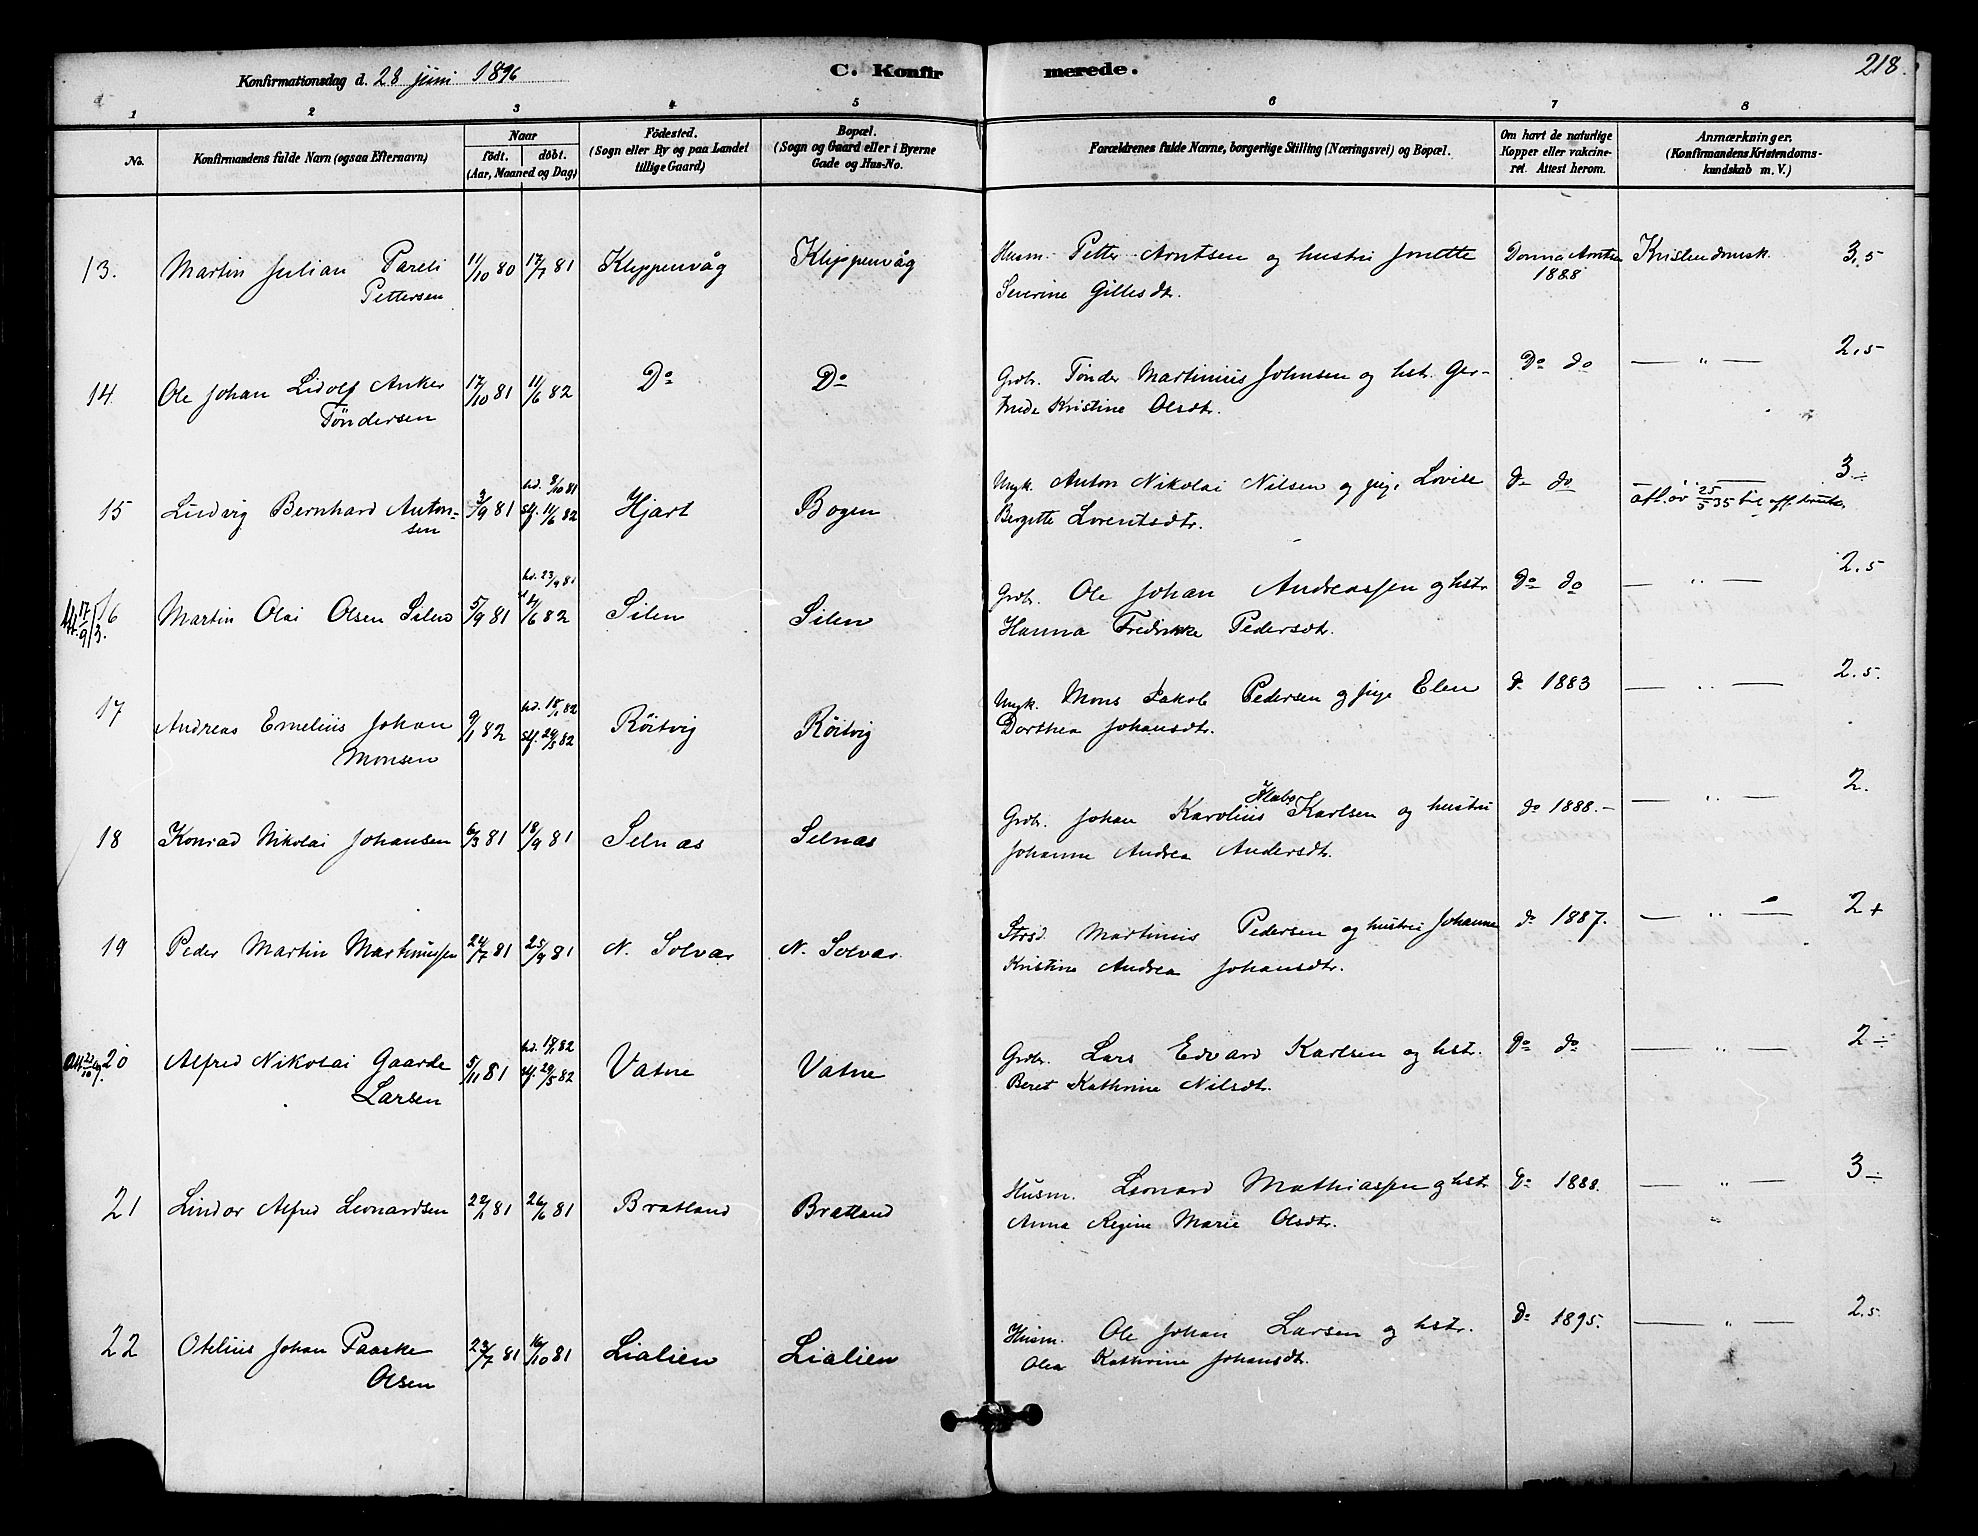 Konfirmationsdag d. 28 juni 1896
C. Konfirmerede.
218.
1 2 3 4 5 6 7 8
No.
Konfirmandens fulde Navn (ogsaa Efternavn)
Naar
födt. döbt.
(Aar, Maaned og Dag)
Födested.
(Sogn eller By og paa Landet
tillige Gaard)
Bopæl.
(Sogn og Gaard eller i Byerne
Gade og Hus-No.
Forældrenes fulde Navne, borgerlige Stilling (Næringsvei) og Bopæl.
Om havt de naturlige
Kopper eller vakcine-
ret. Attest herom.
Anmærkninger.
(Konfirmandens Kristendoms-
kundskab m. V.)
13. Martin Julian Pareli 11/10 80 17/7 81 Klippenvåg Klippenvåg Husm. Petter Arntsen og hustru Jonette Donna Arntsen Kristendomsk. 3,5
Pettersen Severine Gillesdtr. 1888
14 Ole Johan Lidolf Anker 17/10 81 11/6 82 Do Do Grdbr. Tönder Martinius Johnsen og hst. Ger- Do do — " — 2,5
Töndersen trude Kristine Olsdtr.
15 Ludvig Bernhard Anton- 3/9 81 hd. 8/10 81 Hjart Bogen Ungk. Anton Nikolai Nilsen og pige Lovise do do — " — 3 ÷
sen stf. 11/6 82 Bergette Lorentsdtr. 25/5 35 til
16 Martin Olai Olsen Silen 5/9 81 hd. 23/9 81 11/6 82 Silen Silen Grdbr. Ole Johan Andreassen og hstr Do do — " — 2,5
Hanna Fredrikke Pedersdtr.
17 Andreas Emelius Johan 9/1 82 hd. 18/1 82 Röitvig Röitvig Ungk. Mons Jakob Pedersen og pige Elen do 1883 — " — 2.5.
Monsen stf. 29/5 82 Dorthea Johansdtr.
18 Konrad Nikolai Johansen 6/3 81 18/9 81 Selnæs Selnæs Grdbr. Johan Karolius Klabo Karlsen og hustru do 1888. — — " — 2.
Johanna Andrea Andersdtr.
19 Peder Martin Martinussen 24/7 81 25/9 81 N. Solvær N. Solvær. Strsd. Martinus Pedersen og hustru Johanna do 1887. — " — 2+
Kristine Andrea Johansdtr.
20 Alfred Nikolai Gaarde 5/11 81 hd. 18/1 82 Vatne Vatne Grdbr. Lars Edvard Karlsen og hstr. Do do — " — 2 ÷
Larsen stf. 29/5 82 Beret Kathrine Nilsdtr.
21 Lindor Alfred Leonardsen 22/1 81 26/6 81 Bratland Bratland Husm. Leonard Mathiassen og hstr Do 1888. — " — 3 ÷
Anna Regine Marie Olsdtr. "
22 Otelius Johan Paaske 23/7 81 16/10 81 Lialien Lialien Husm. Ole Johan Larsen og hstr. Do 1895. — " — 2.5
Olsen Olea Kathrine Johansdtr.